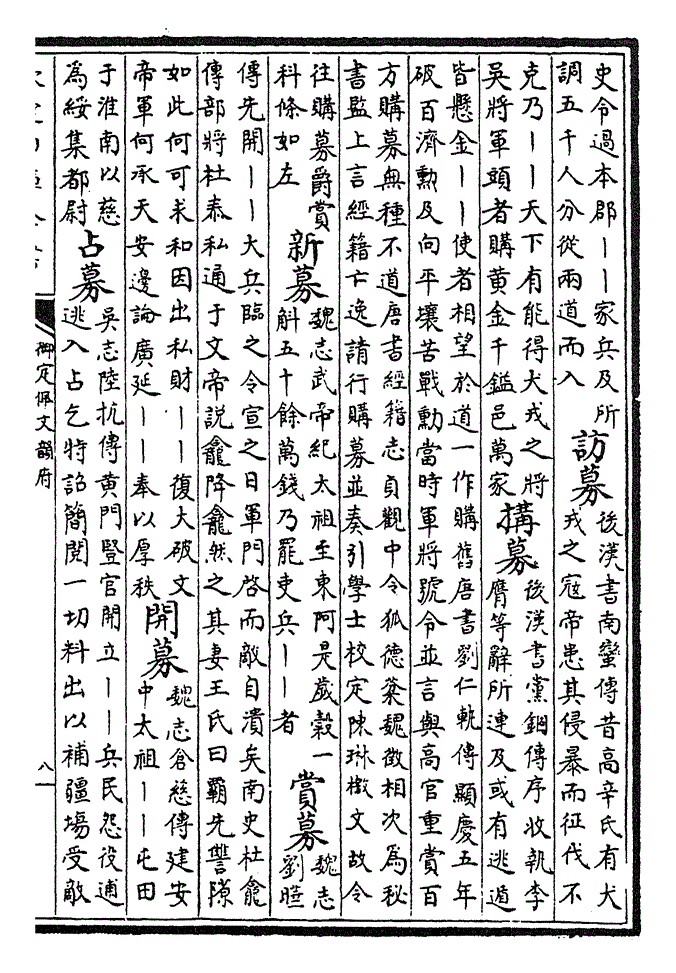 史令過本郡丨丨家兵及所
調五千人分從兩道而入
訪募
後漢書南蠻傳昔高辛氏有犬
戎之寇帝患其侵暴而征伐不
克乃丨丨天下有能得犬戎之將
吳將軍頭者購黄金千鎰邑萬家
搆募
後漢書黨錮傳序收執李
膺等辭所連及或有逃遁
皆懸金丨丨使者相望於道一作購舊唐書劉仁軌傳顯慶五年
破百濟勳及向平壤苦戰勳當時軍將號令並言與高官重賞百
方購募無種不道唐書經籍志貞觀中令狐德棻魏徵相次為秘
書監上言經籍亡逸請行購募並奏引學士校定陳琳檄文故令
往購募爵賞
科條如左
新募
魏志武帝紀太祖至東阿是歲穀一
斛五十餘萬錢乃罷吏兵丨丨者
賞募
魏志
劉曄
傳先開丨丨大兵臨之令宣之日軍門啓而敵自潰矣南史杜龕
傳部將杜泰私通于文帝説龕降龕然之其妻王氏曰霸先讐隙
如此何可求和因出私財丨丨復大破文
帝軍何承天安邊論廣延丨丨奉以厚秩
開募
魏志倉慈傳建安
中太祖丨丨屯田
于淮南以慈
為綏集都尉
占募
吳志陸抗傳黄門豎官開立丨丨兵民怨役逋
逃入占乞特詔簡閱一切料出以補疆場受敵
御定佩文韻府
八